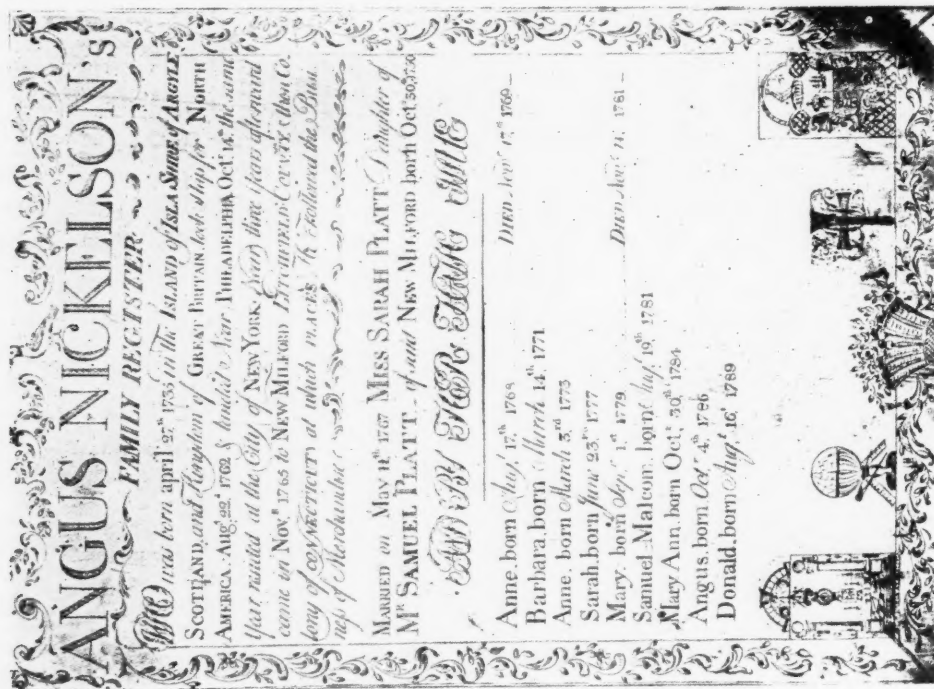 ANGUS NICKELSON's
FAMILY REGISTER
Who was born april 27th 1735 in The ISLAND of ISLA SHIRE of ARGYLE
SCOTLAND, and Kingdom of GREAT BRITAIN took ship for NORTH
AMERICA, Augt 22d 1762 & landed Near PHILADELPHIA Octr 14th the same
Year, resided at the City of NEW YORK Every time Years afterward
came in Novr 1765 to NEW MILFORD LITCHFIELD COUNTY, then Co
lony of CONNECTICUT at which places he followed the Busi
ness of Merchandise
MARRIED on MAY 11th 1767 MISS SARAH PLATT Daughter of
Mr SAMUEL PLATT of and NEW MILFORD born Octr 30, 1750
AND BY HER HAVE ISSUE
Anne. born Augt 17th 1768 DIED Novr 17th 1769
Barbara. born March 14th 1771
Anne. born March 3rd 1775
Sarah. born June 23rd 1777
Mary. born Sepr 1st 1779 DIED Augt 14, 1781
Samuel-Malcom. born Augt 19th 1781
Mary Ann. born Octr 30th 1784
Angus. born Octr 4th 1786
Donald. born Augt 16, 1789